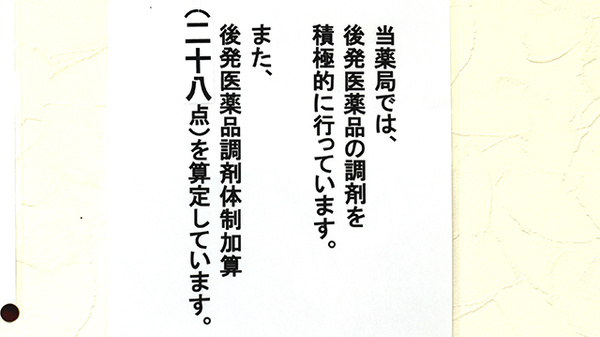 当薬局では、
後発医薬品の調剤を
積極的に行っています。
また、
後発医薬品調剤体制加算
(二十八点)を算定しています。